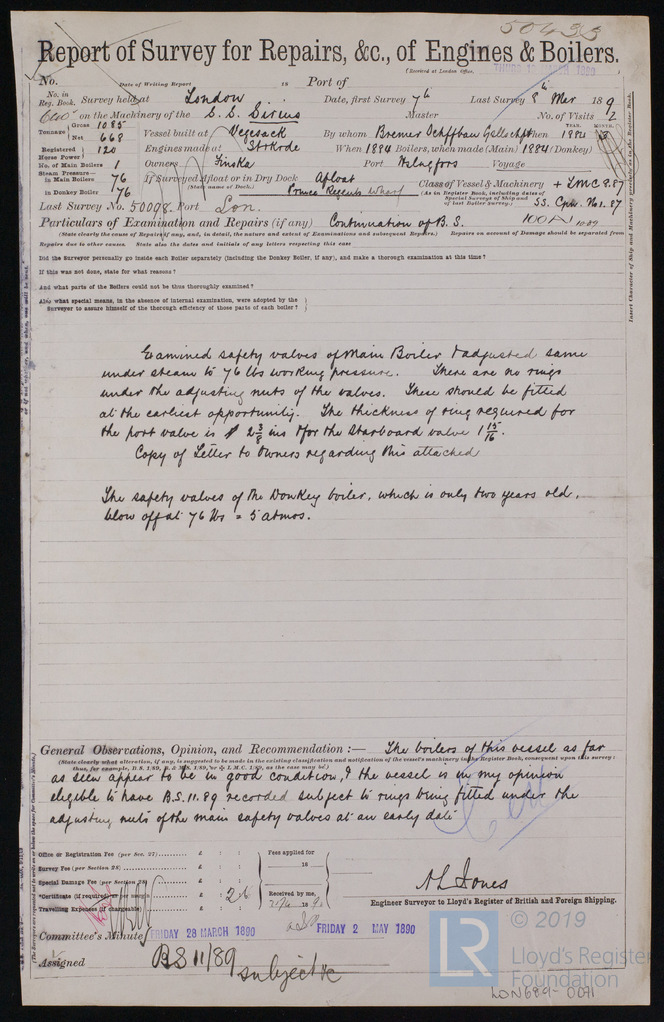 50433
Report of Survey for Repairs, &c., of Engines & Boilers.
(Received at London Office,
No. Date of Writing Report 18 Port of
No. in Reg. Book. Survey held at London Date, first Survey 7th Last Survey 8th Mar 189
on the Machinery of the S.S. Sirius Master No. of Visits 2
Tonnage Gross 1085 Net 668 Vessel built at Vegesack By whom Bremer Schiffbau Gesellschft When 1884
Registered Horse Power 120 Engines made at When 1884 Boilers, when made (Main) 1884 (Donkey)
No. of Main Boilers 1 Owners Finska Port Helsingfors Voyage
Steam Pressure— in Main Boilers 76 If Surveyed Afloat or in Dry Dock Afloat Class of Vessel & Machinery + LMC 9.87
(State name of Dock.) (As in Register Book, including dates of Special Surveys of Ship and of last Boiler survey.)
in Donkey Boiler 76 Prince Regents Wharf
Last Survey No. 50098. Port Lon.
Particulars of Examination and Repairs (if any) Continuation of B.S. 100A1
(State clearly the cause of Repairs, if any, and, in detail, the nature and extent of Examinations and subsequent Repairs.) Repairs on account of Damage should be separated from
Repairs due to other causes. State also the dates and initials of any letters respecting this case
Did the Surveyor personally go inside each Boiler separately (including the Donkey Boiler, if any), and make a thorough examination at this time?
If this was not done, state for what reasons?
And what parts of the Boilers could not be thus thoroughly examined?
Also what special means, in the absence of internal examination, were adopted by the
Surveyor to assure himself of the thorough efficiency of those parts of each boiler?
Examined safety valves of Main Boiler & adjusted same
under steam to 76 lbs working pressure. There are no rings
under the adjusting nuts of the valves. These should be fitted
at the earliest opportunity. The thickness of ring required for
the port valve is 2 3/8 ins & for the Starboard valve 1 15/16.
Copy of Letter to Owners regarding this attached
The safety valves of the Donkey boiler, which is only two years old,
blow off at 76 lbs = 5 atmos.
General Observations, Opinion, and Recommendation :— The boilers of this vessel as far
(State clearly what alteration, if any, is suggested to be made in the existing classification and notification of the vessel's machinery in the Register Book, consequent upon this survey:
as seen appear to be in good condition, & the vessel is in my opinion
eligible to have B.S. 11.89 recorded subject to rings being fitted under the
adjusting nuts of the main safety valves at an early date
Office or Registration Fee (per Sec. 27) £ : : Fees applied for
Survey Fee (per Section 28) £ : : 18
Special Damage Fee (per Section 28) £ : :
*Certificate (if required) £ : 2/6 Received by me,
Travelling Expenses (if chargeable) £ : :
A L Jones
Engineer Surveyor to Lloyd's Register of British and Foreign Shipping.
Committee's Minute FRIDAY 28 MARCH 1890 FRIDAY 2 MAY 1890
Assigned BS 11/89
subject &c
Insert Character of Ship and Machinery precisely as in the Register Book.
LR © 2019
Lloyd's Register
Foundation
LON689-0071